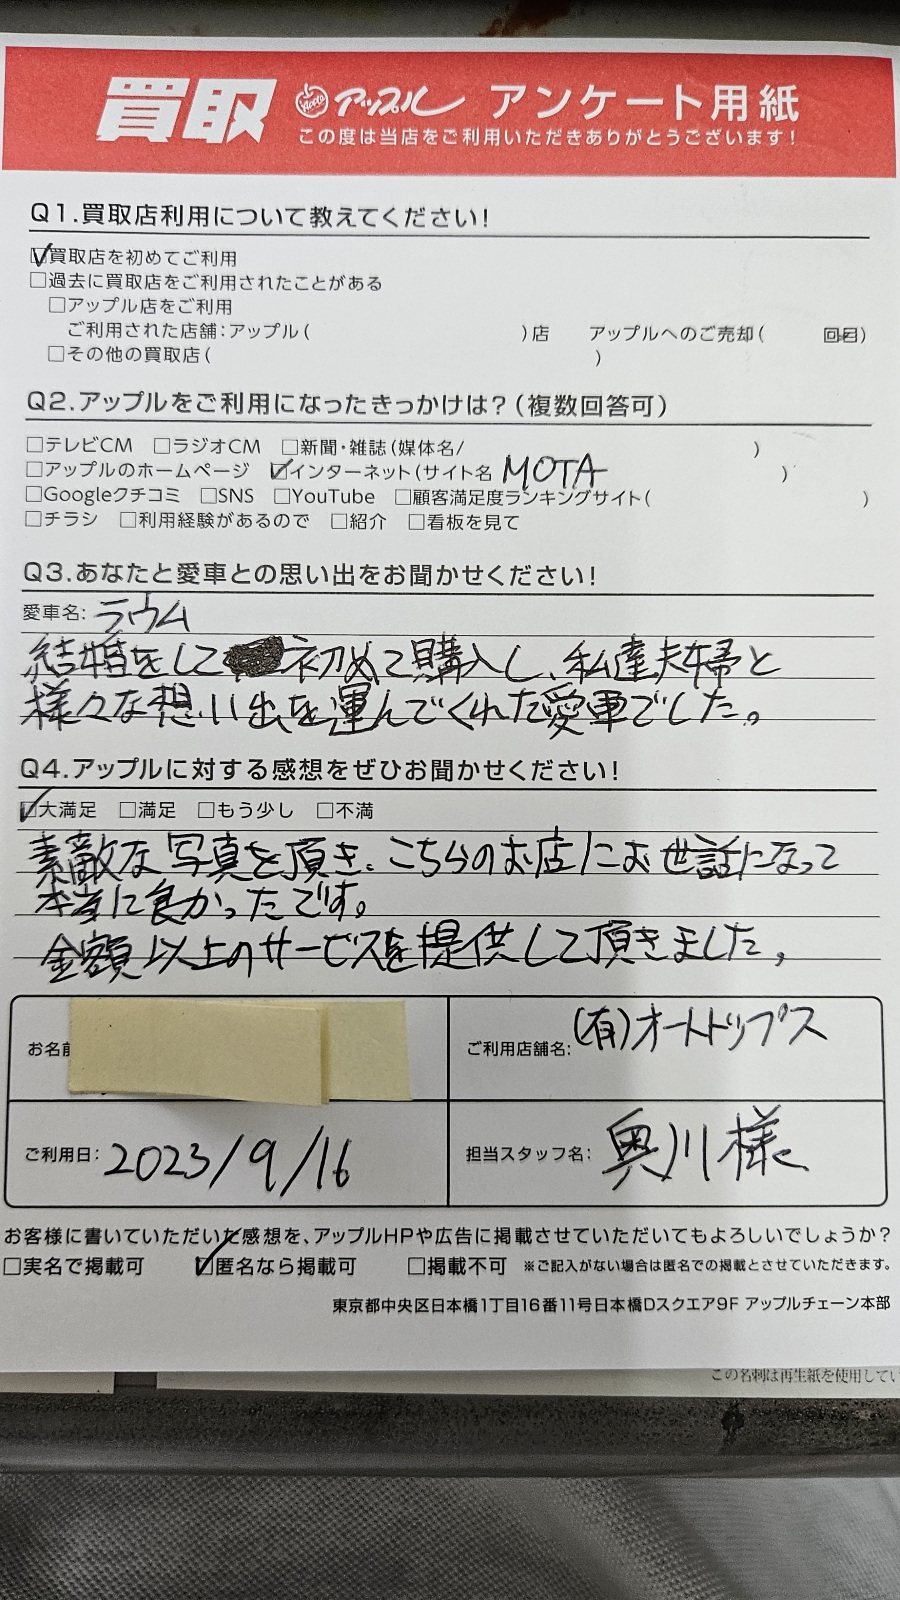 買取 アップル アンケート用紙
この度は当店をご利用いただきありがとうございます!
Q1.買取店利用について教えてください!
☑買取店を初めてご利用
□過去に買取店をご利用されたことがある
□アップル店をご利用
ご利用された店舗:アップル( )店 アップルへのご売却( 回目)
□その他の買取店( )
Q2.アップルをご利用になったきっかけは?(複数回答可)
□テレビCM □ラジオCM □新聞・雑誌(媒体名/ )
□アップルのホームページ ☑インターネット(サイト名 MOTA )
□Googleクチコミ □SNS □YouTube □顧客満足度ランキングサイト( )
□チラシ □利用経験があるので □紹介 □看板を見て
Q3.あなたと愛車との思い出をお聞かせください!
愛車名: ラウム
結婚をして初めて購入し、私達夫婦と
様々な想い出を運んでくれた愛車でした。
Q4.アップルに対する感想をぜひお聞かせください!
☑大満足 □満足 □もう少し □不満
素敵な写真を頂き、こちらのお店にお世話になって
本当に良かったです。
金額以上のサービスを提供して頂きました。
お名前
ご利用店舗名: (有)オートトップス
ご利用日: 2023/9/16
担当スタッフ名: 奥川様
お客様に書いていただいた感想を、アップルHPや広告に掲載させていただいてもよろしいでしょうか?
□実名で掲載可 ☑匿名なら掲載可 □掲載不可 ※ご記入がない場合は匿名での掲載とさせていただきます。
東京都中央区日本橋1丁目16番11号日本橋Dスクエア9F アップルチェーン本部
この名刺は再生紙を使用してい